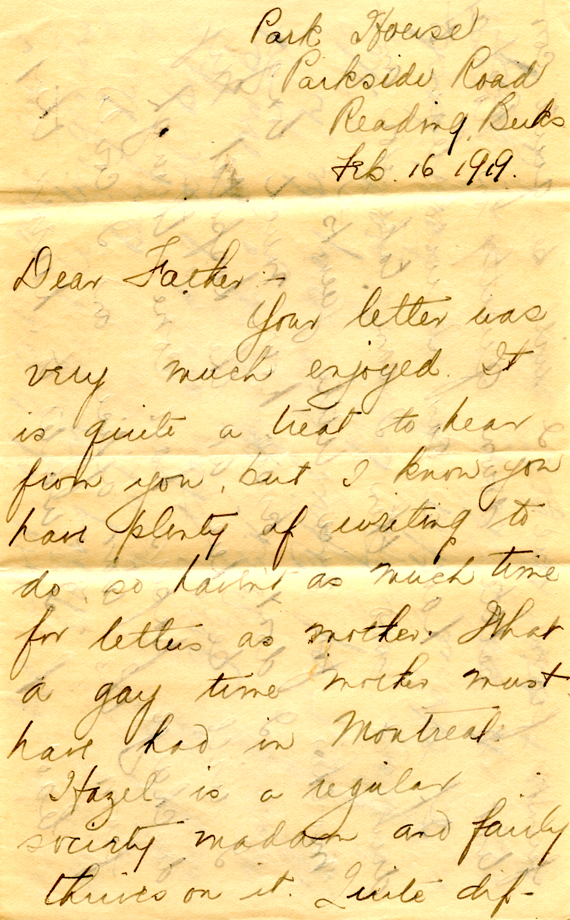 Park House
Parkside Road
Reading, Berks
Feb. 16 1919.
Dear Father:-
Your letter was
very much enjoyed. It
is quite a treat to hear
from you, but I know you
have plenty of writing to
do so haven't as much time
for letters as mother. What
a gay time mother must
have had in Montreal.
Hazel is a regular
society madam and fairly
thrives on it. Quite dif-